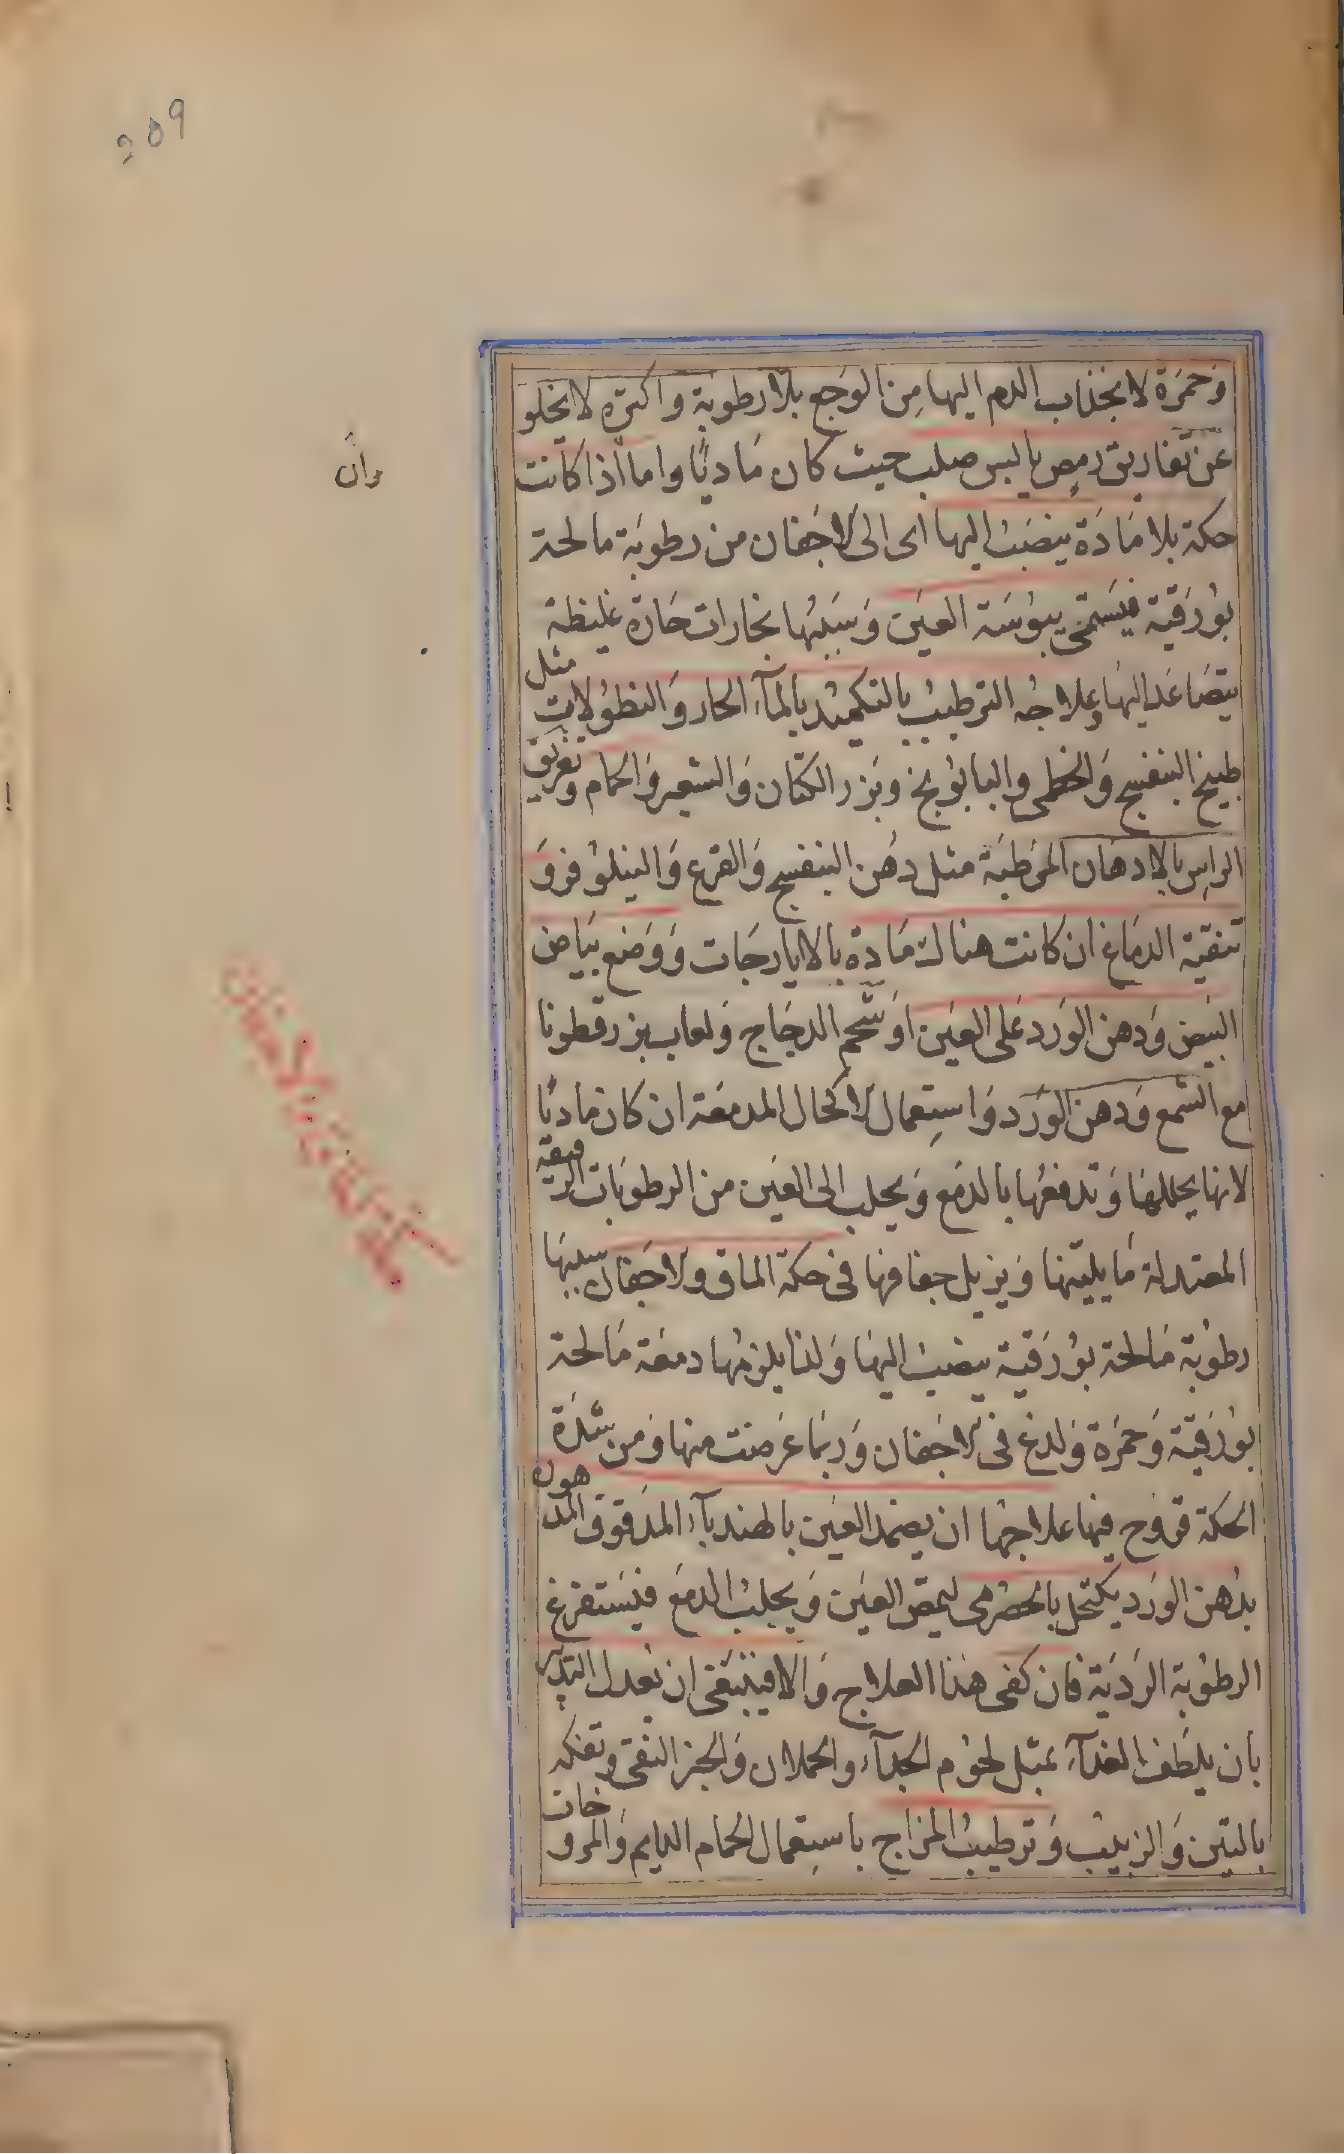 وَحمَرَة لا بخذاب الدم اليها مِن الوَجع بلا رطوبة واكثره لا يخلو
عن تفاريق رمص يابس صلب حيث كان مَاديّا واما اذا كانت
حكة بلا مَادَة ينصَبّ اليها اى الى الاجفان من رطوبَة مالحة
بوُرَقيّة فيسَمّى يبوُسَة العيَن وَسَبَبُها بخارات حَارّة غليظة
يتصَاعَد اليهَا وعلاجُه الترطيبُ بالتكميُد بالمآء الحار وَالنطوُلات مثل
طبيخ البنفسج وَالخطمى والبابوُنج وبَزر الكتان وَالشعير وَالحمام وتغريق
الراس بالادهَان المرَطبَة مثل دهُن البنفسج وَالقرع وَالنيلوُفر وَ
تنقيَة الدمَاغ ان كانت هناك مَادة بالايارجَات وَوَضع بيَاض
البيَض وَدهن الوَرد عَلى العيَن اوَ شحم الدجَاج وَلعاب بزر قطونا
مع الشمع وَدهن الوَرَد وَاستِعمال الاكحال المدمعَة ان كان ماديّا
لانها يحللهَا وَتدفعُها بالدمَع وَيجلب الى العيَن من الرطوبَات الرقيقة
المعتدلة مَا يليّنها وَيزيل جفافها فى حكة الماق والاجَفان سببها
رطوُبة مَالحة بوُرَقيَة ينصَبُ اليهَا وَلذا يلزمُها دمعَة مَالحة
بوُرَقيّة وَحمرَة وَلدغ فى الاجَفان وَربمَا عَرضت منها وَمن شدَة
الحكة قروُح فيها علاجُها ان يضمد العيَن بالهندبآء المدَقوق المدهون
بدُهن الورد يكتحل بالحصرمى ليمص العيَن وَيجلبُ الدمَع فيسَتفرغ
الرطوُبة الرَديَة فان كفى هَذا العلاج وَالا فينبَغى ان يُعدل التدبير
بان يلطَف الغذآء بمثل لحوُم الجدَآء والحملان وَالخبز النقى وتفكه
بالتين وَالزبيبُ وَترطيبُ المزاج باستِعمال الحمام الدايم وَالمروخات
وان